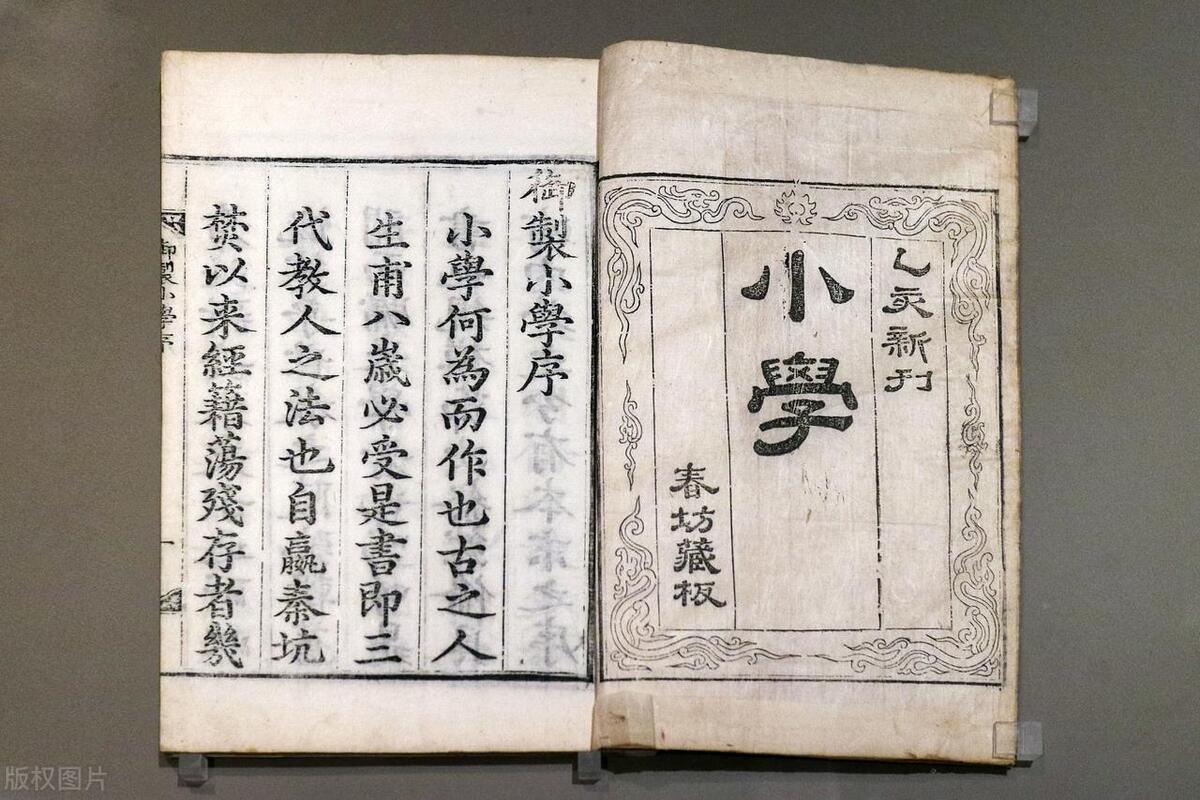 乙亥新刊
小學
春坊藏板
御製小學序
小學何為而作也古之人
生甫八歲必受是書即三
代教人之法也自嬴秦坑
焚以来經籍蕩殘存者幾
御製小學序
一
版权图片